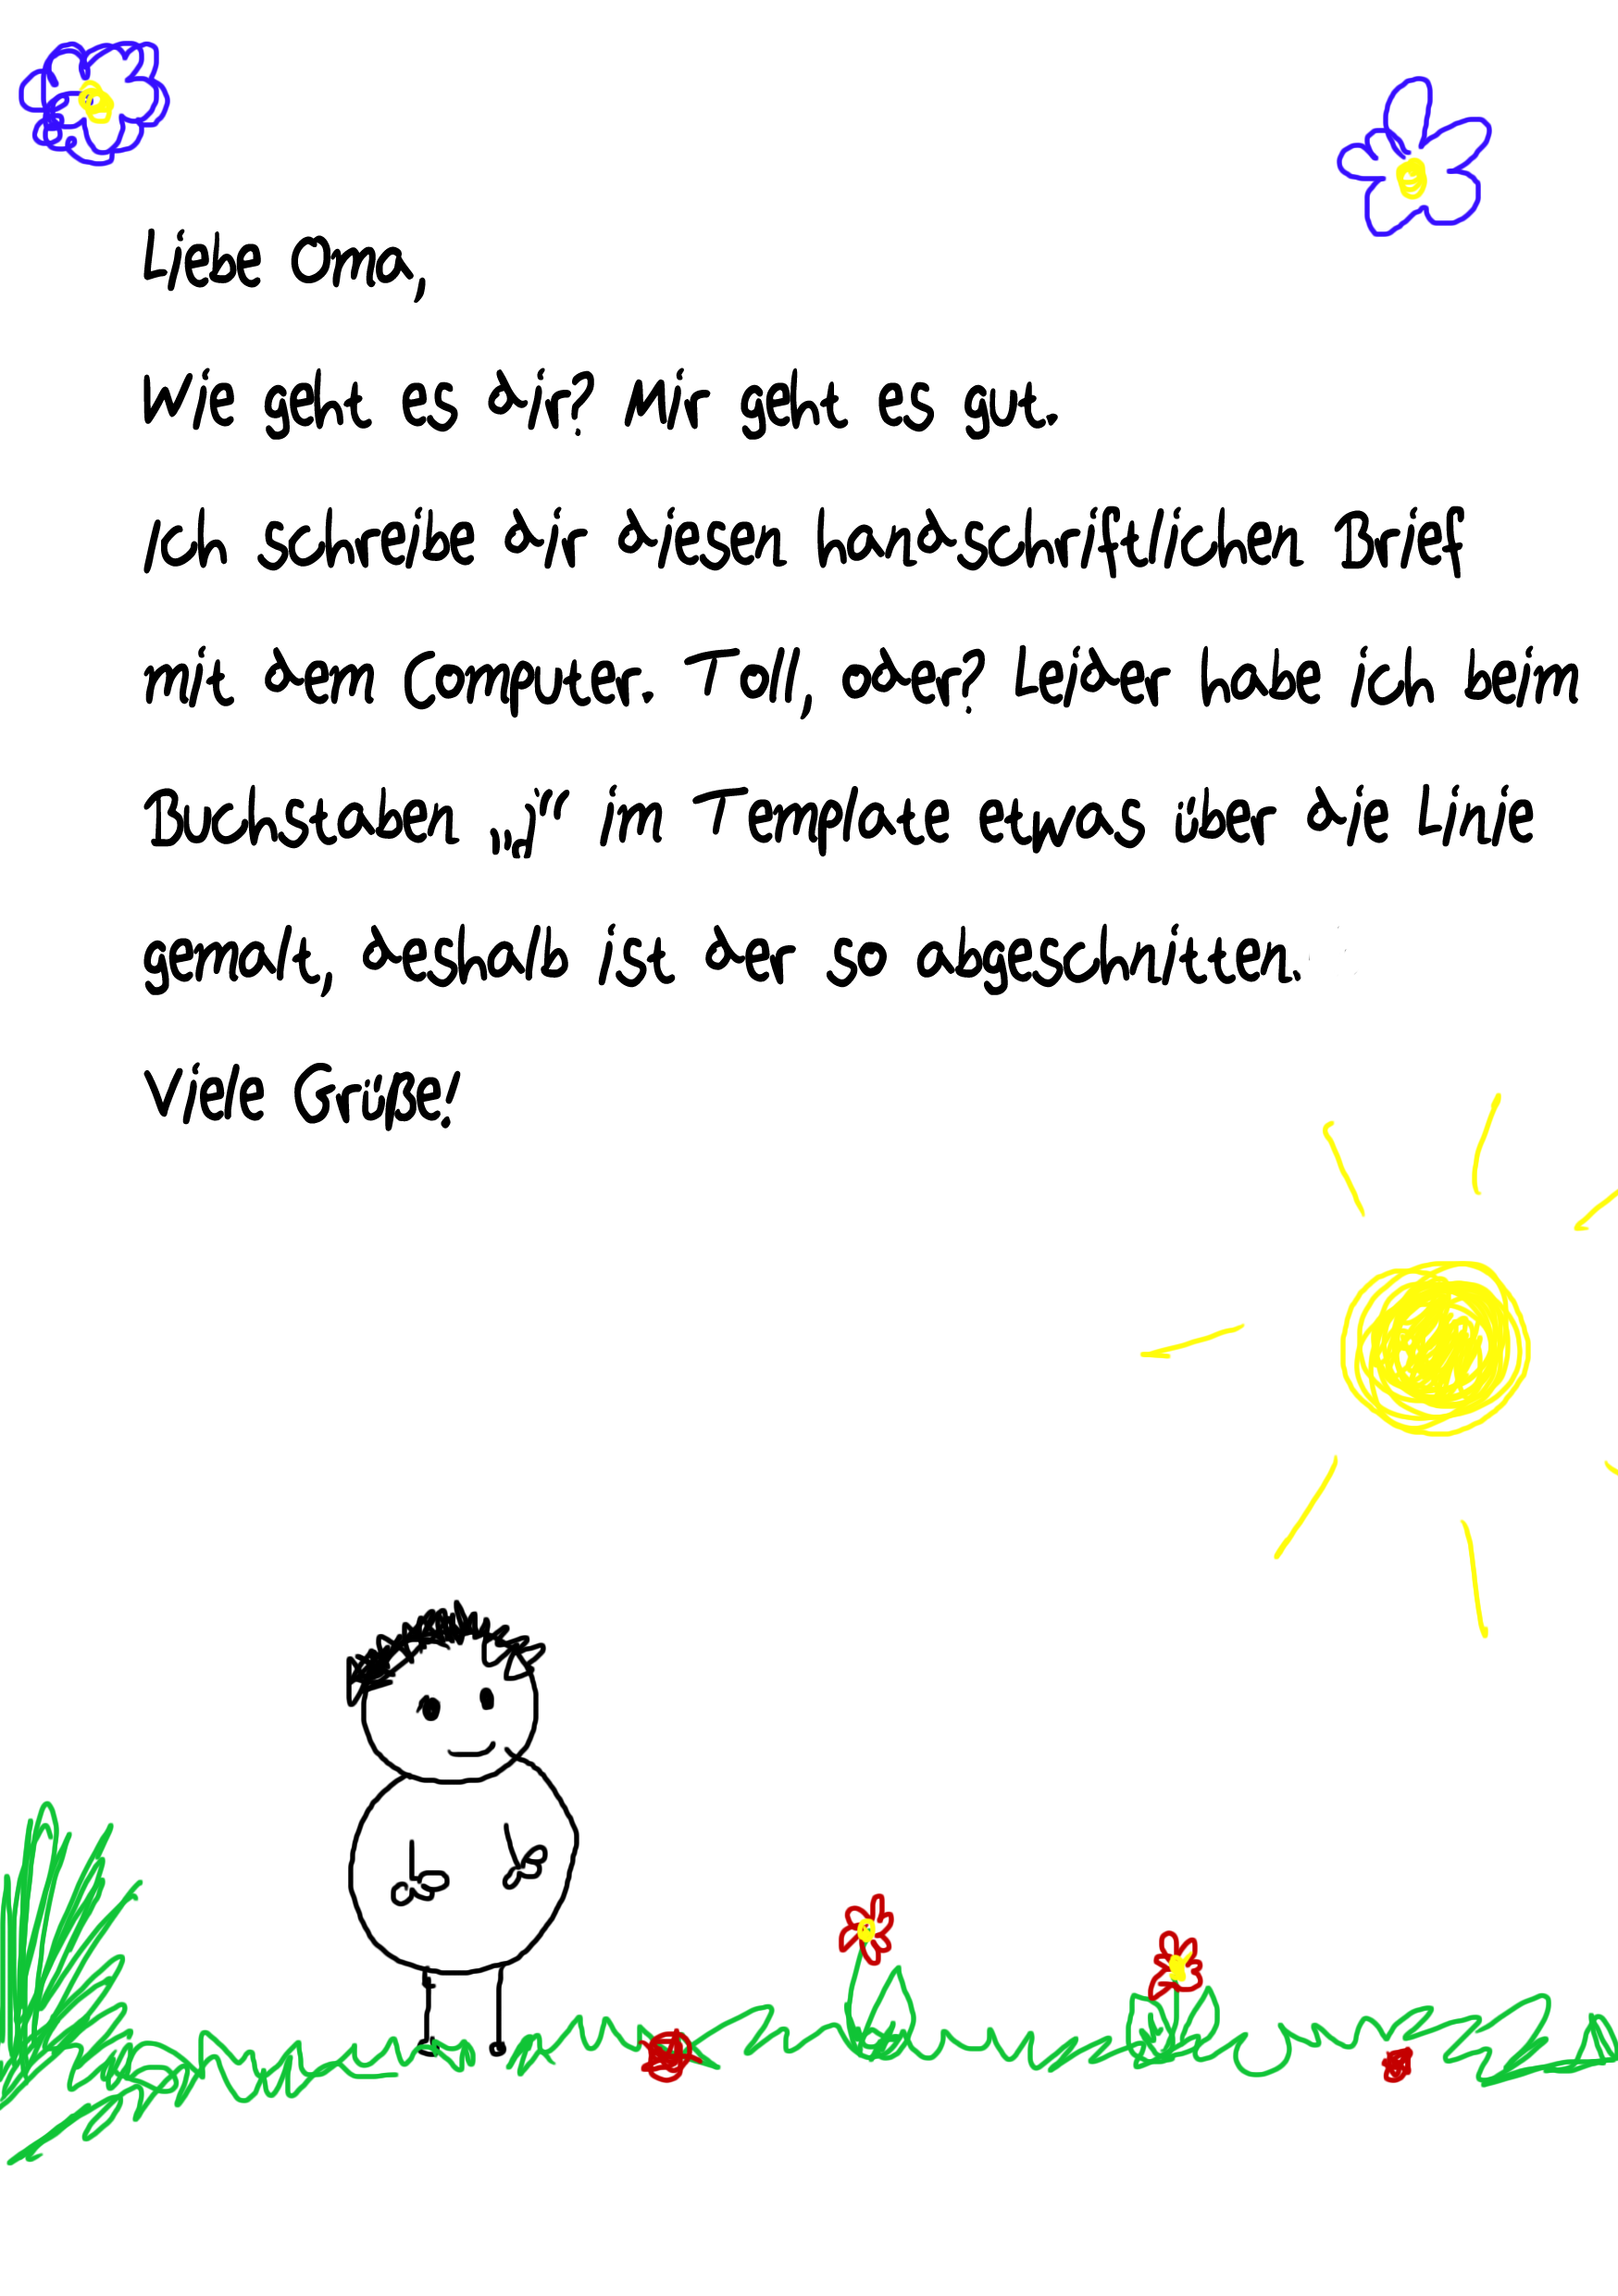 Liebe Oma,
Wie geht es dir? Mir geht es gut.
Ich schreibe dir diesen handschriftlichen Brief
mit dem Computer. Toll, oder? Leider habe ich beim
Buchstaben „j“ im Template etwas über die Linie
gemalt, deshalb ist der so abgeschnitten.
Viele Grüße!